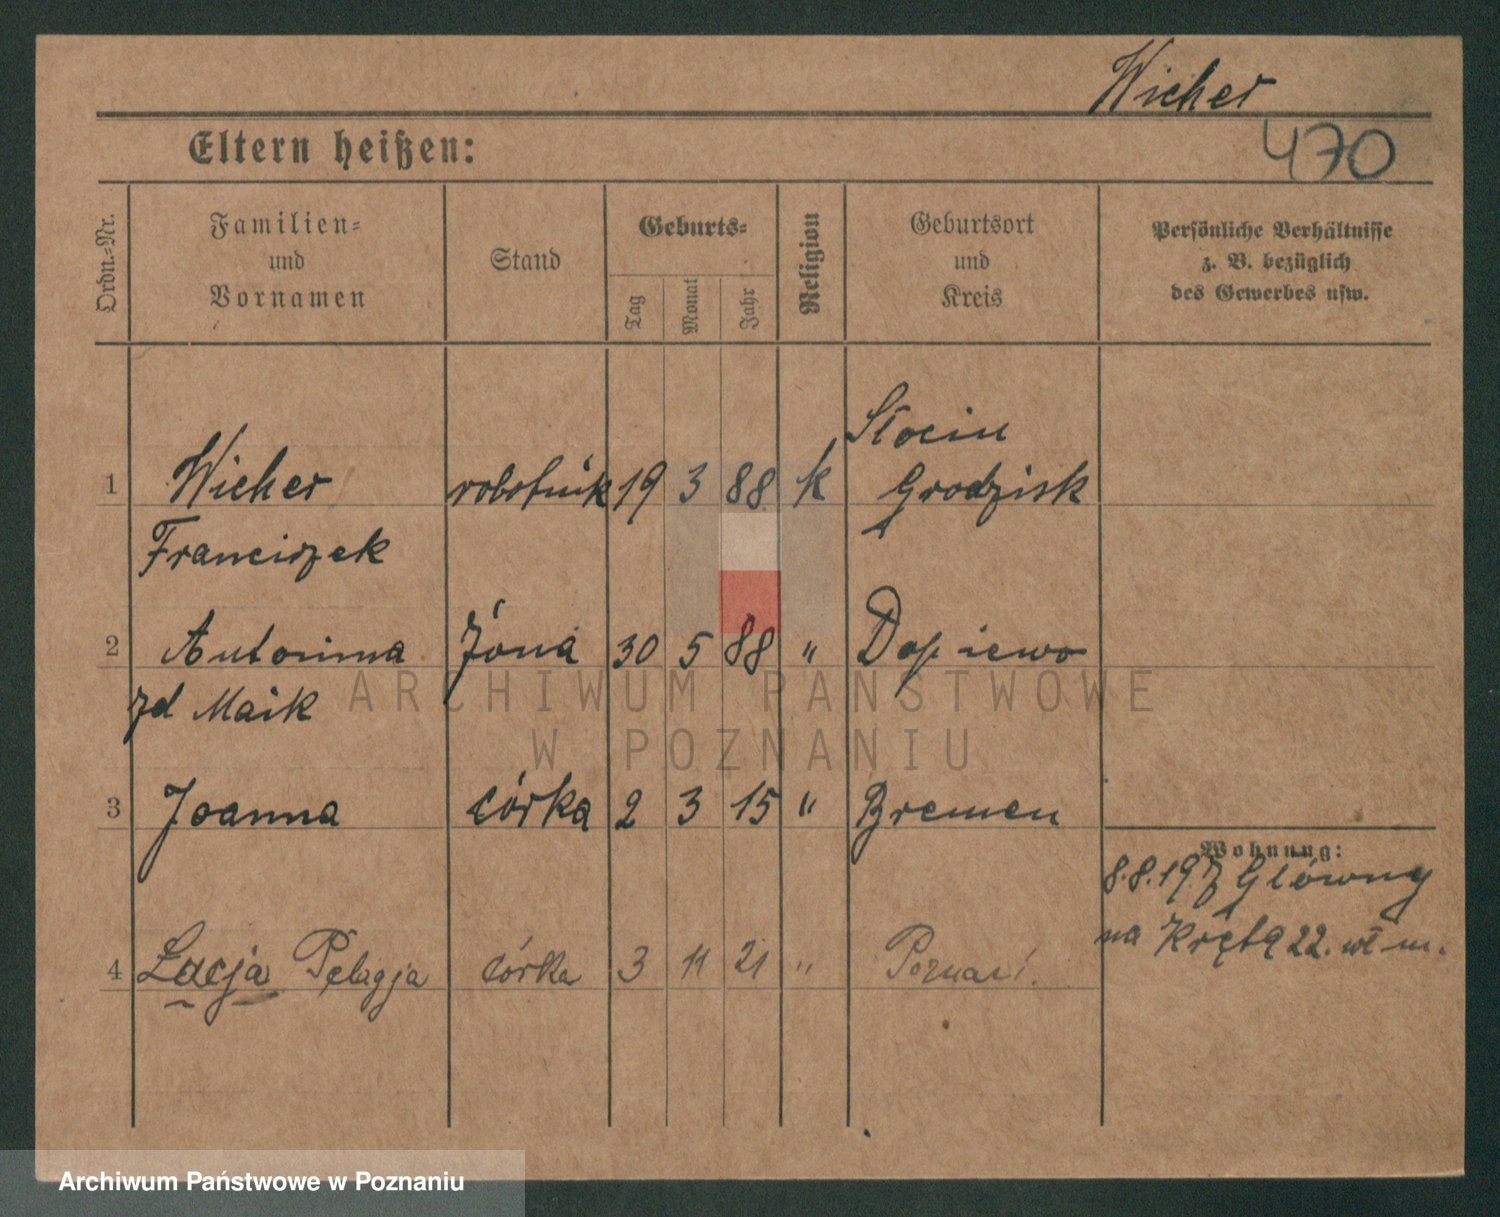 Wicher
Eltern heißen:
470
Ordn.-Nr.
Familien-
und
Vornamen
Stand
Geburts-
Tag
Monat
Jahr
Religion
Geburtsort
und
Kreis
Persönliche Verhältnisse
z. B. bezüglich
des Gewerbes usw.
Słocin
1 Wicher robotnik 19 3 88 k Grodzisk
Franciszek
2 Antonina żona 30 5 88 " Dopiewo
zd Maik
ARCHIWUM PAŃSTWOWE
W POZNANIU
3 Joanna córka 2 3 15 " Bremen
Wohnung:
8.8.19 z Główny
na Krętą 22. wł m.
4 Łucja Pelagja córka 3 11 21 " Poznań.
Archiwum Państwowe w Poznaniu